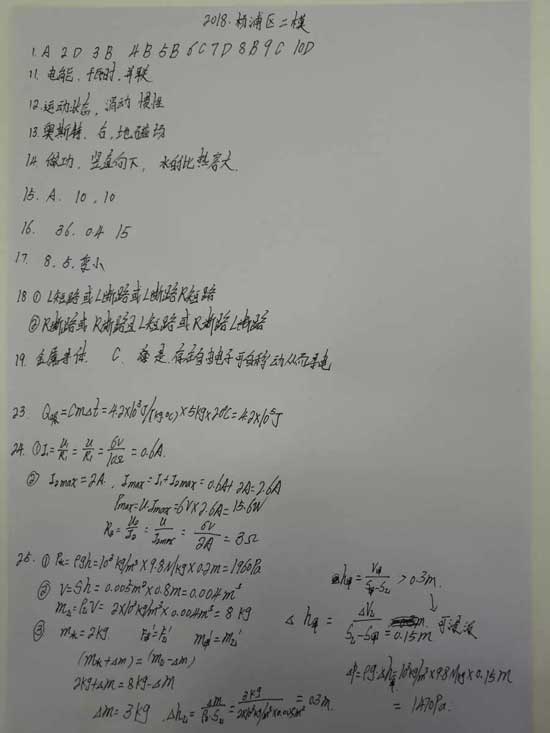 2018. 杨浦区二模
1. A 2 D 3 B 4 B 5 B 6 C 7 D 8 B 9 C 10 D
11. 电能、千瓦时、并联
12. 运动状态, 滑动 惯性
13. 奥斯特、右、地磁场
14. 做功、竖直向下, 水的比热容大.
15. A. 10, 10
16. 36. 0.4 15
17. 8. 5. 变小
18 ① L短路或L断路或L断路R短路
② R断路或 R断路且L短路 或R断路L断路
19. 金属导体. C. 存在自由电子可自由移动从而导电
23. Q吸=Cm△t=4.2×10³J/(kg℃)×5kg×20℃=4.2×10⁵J
24. ①I₁=U₁/R₁=U/R₁=6V/10Ω=0.6A.
② I₂max=2A, Imax=I₁+I₂max=0.6A+2A=2.6A
Pmax=U·Imax=6V×2.6A=15.6W
R₂=U₂/I₂=U/I₂max=6V/2A=3Ω
25. ① P水=ρgh=10³kg/m³×9.8N/kg×0.2m=1960Pa
② V=Sh=0.005m²×0.8m=0.004m³
m乙=ρ乙V=2×10³kg/m³×0.004m³=8kg
③ m水=2kg P甲'=P乙' m甲'=m乙'
(m水+△m)=(m乙-△m)
2kg+△m=8kg-△m
△m=3kg △h乙=△m/ρ乙·S乙=3kg/2×10³kg/m³×0.005m²=0.3m.
h甲=V甲/S甲-S乙>0.3m.
△h甲=△V乙/S乙-S甲=0.15m 可浸没
△P=ρg△h甲=10³kg/m³×9.8N/kg×0.15m
=1470Pa.